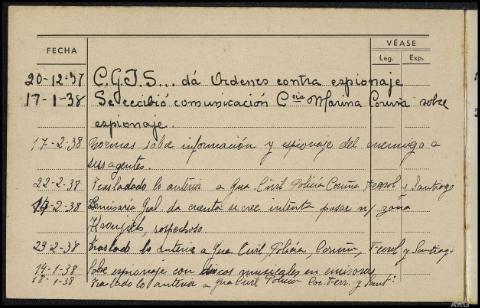 FECHA
VÉASE
Leg.
Exp.
20-12-37 C.G.I.S... dá Ordenes contra espionaje
17-1-38 Se recibió comunicación Cria Marina Coruña sobre
espionaje.
17-2-38 Normas sobre información y espionaje del enemigo a
sus agentes.
22-2-38 Trasladado lo anterior a Gua Civil Policia Coruña Ferrol y Santiago
-2-38 Comisaria Gral. da cuenta se cree intenta pasar n/ zona
sospechoso.
23-2-38 Traslado lo anterior a Gua Civil, Policia, Coruña, Ferrol y Santiago
14-1-38 Sobre espionaje con discos musicales en emisoras
18-1-38 Traslado lo anterior a Gua Civil Policia Cor. Ferr. y Sant.